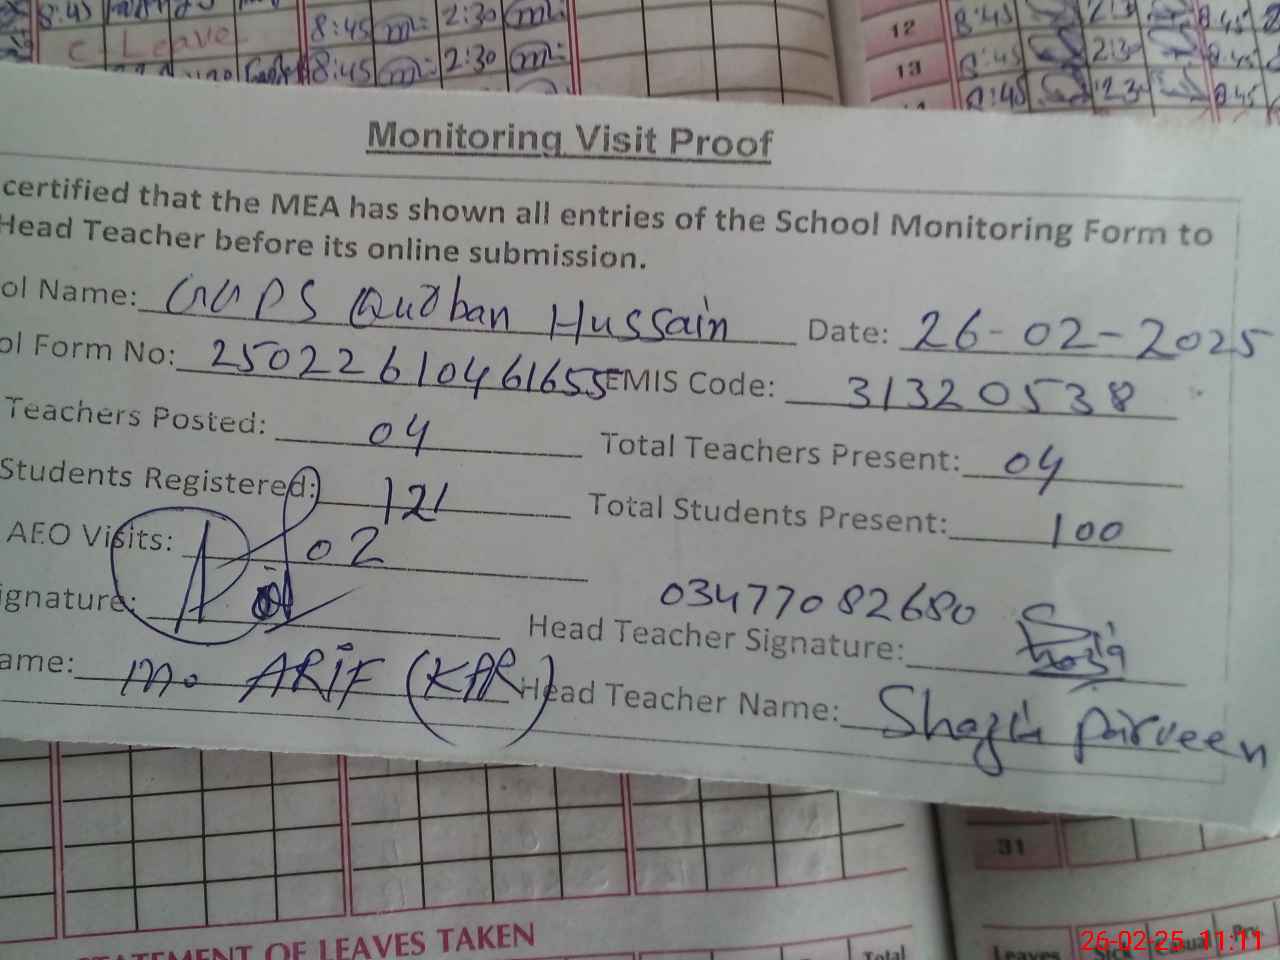 8:45 2:30
c Leave 8:45 m: 2:30 m:
8:45 m: 2:30 m:
12 8:45
13 8:45
8:45
Monitoring Visit Proof
certified that the MEA has shown all entries of the School Monitoring Form to
Head Teacher before its online submission.
ol Name: GGPS Qurban Hussain Date: 26-02-2025
ol Form No: 25022610461655 EMIS Code: 31320538
Teachers Posted: 04 Total Teachers Present: 04
Students Registered: 121 Total Students Present: 100
AEO Visits: 02
03477082680
ignature: Head Teacher Signature:
ame: M. ARIF (KPR) Head Teacher Name: Shazia Parveen
31
STATEMENT OF LEAVES TAKEN
Total Leaves Sick Casual Prv.
26-02-25 11:11